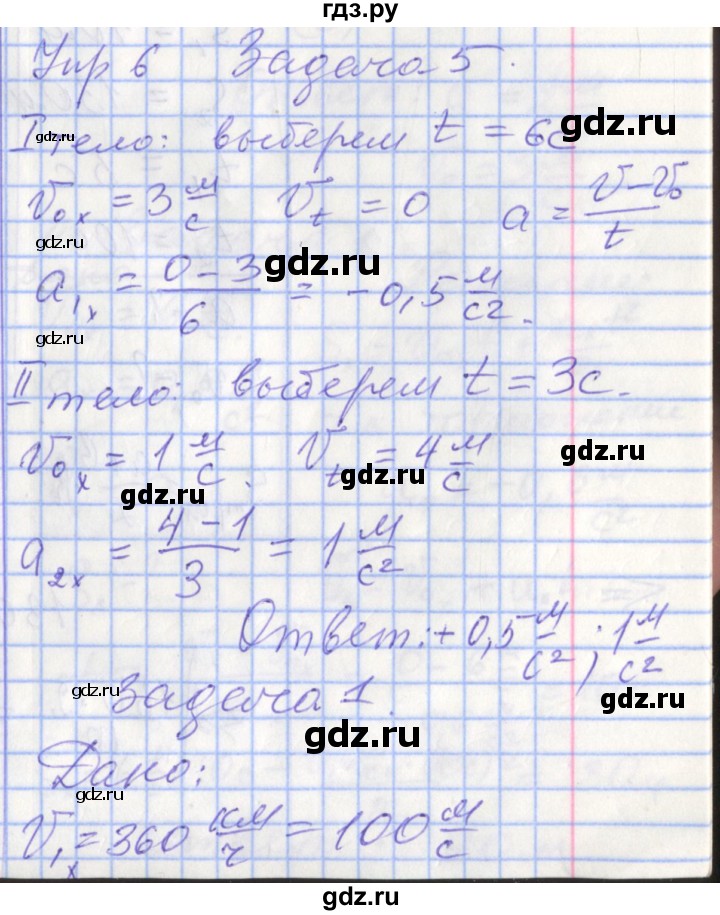 гдз.ру
Упр 6 Задача 5.
I тело: выберем t = 6с
gdz.ru
gdz.ru
V₀ₓ = 3 м/с Vₜ = 0 a = (V – V₀)/t
gdz.ru
gdz.ru
a₁ₓ = (0 – 3)/6 = –0,5 м/с².
gdz.ru
II тело: выберем t = 3с.
V₀ₓ = 1 м/с. Vₜ = 4 м/с
gdz.ru
gdz.ru
gdz.ru
a₂ₓ = (4 – 1)/3 = 1 м/с²
Ответ: + 0,5 м/с²; 1 м/с²
gdz.ru
gdz.ru
Задача 1.
gdz.ru
Дано:
gdz.ru
V₁ₓ = 360 км/ч = 100 м/с
gdz.ru
gdz.ru